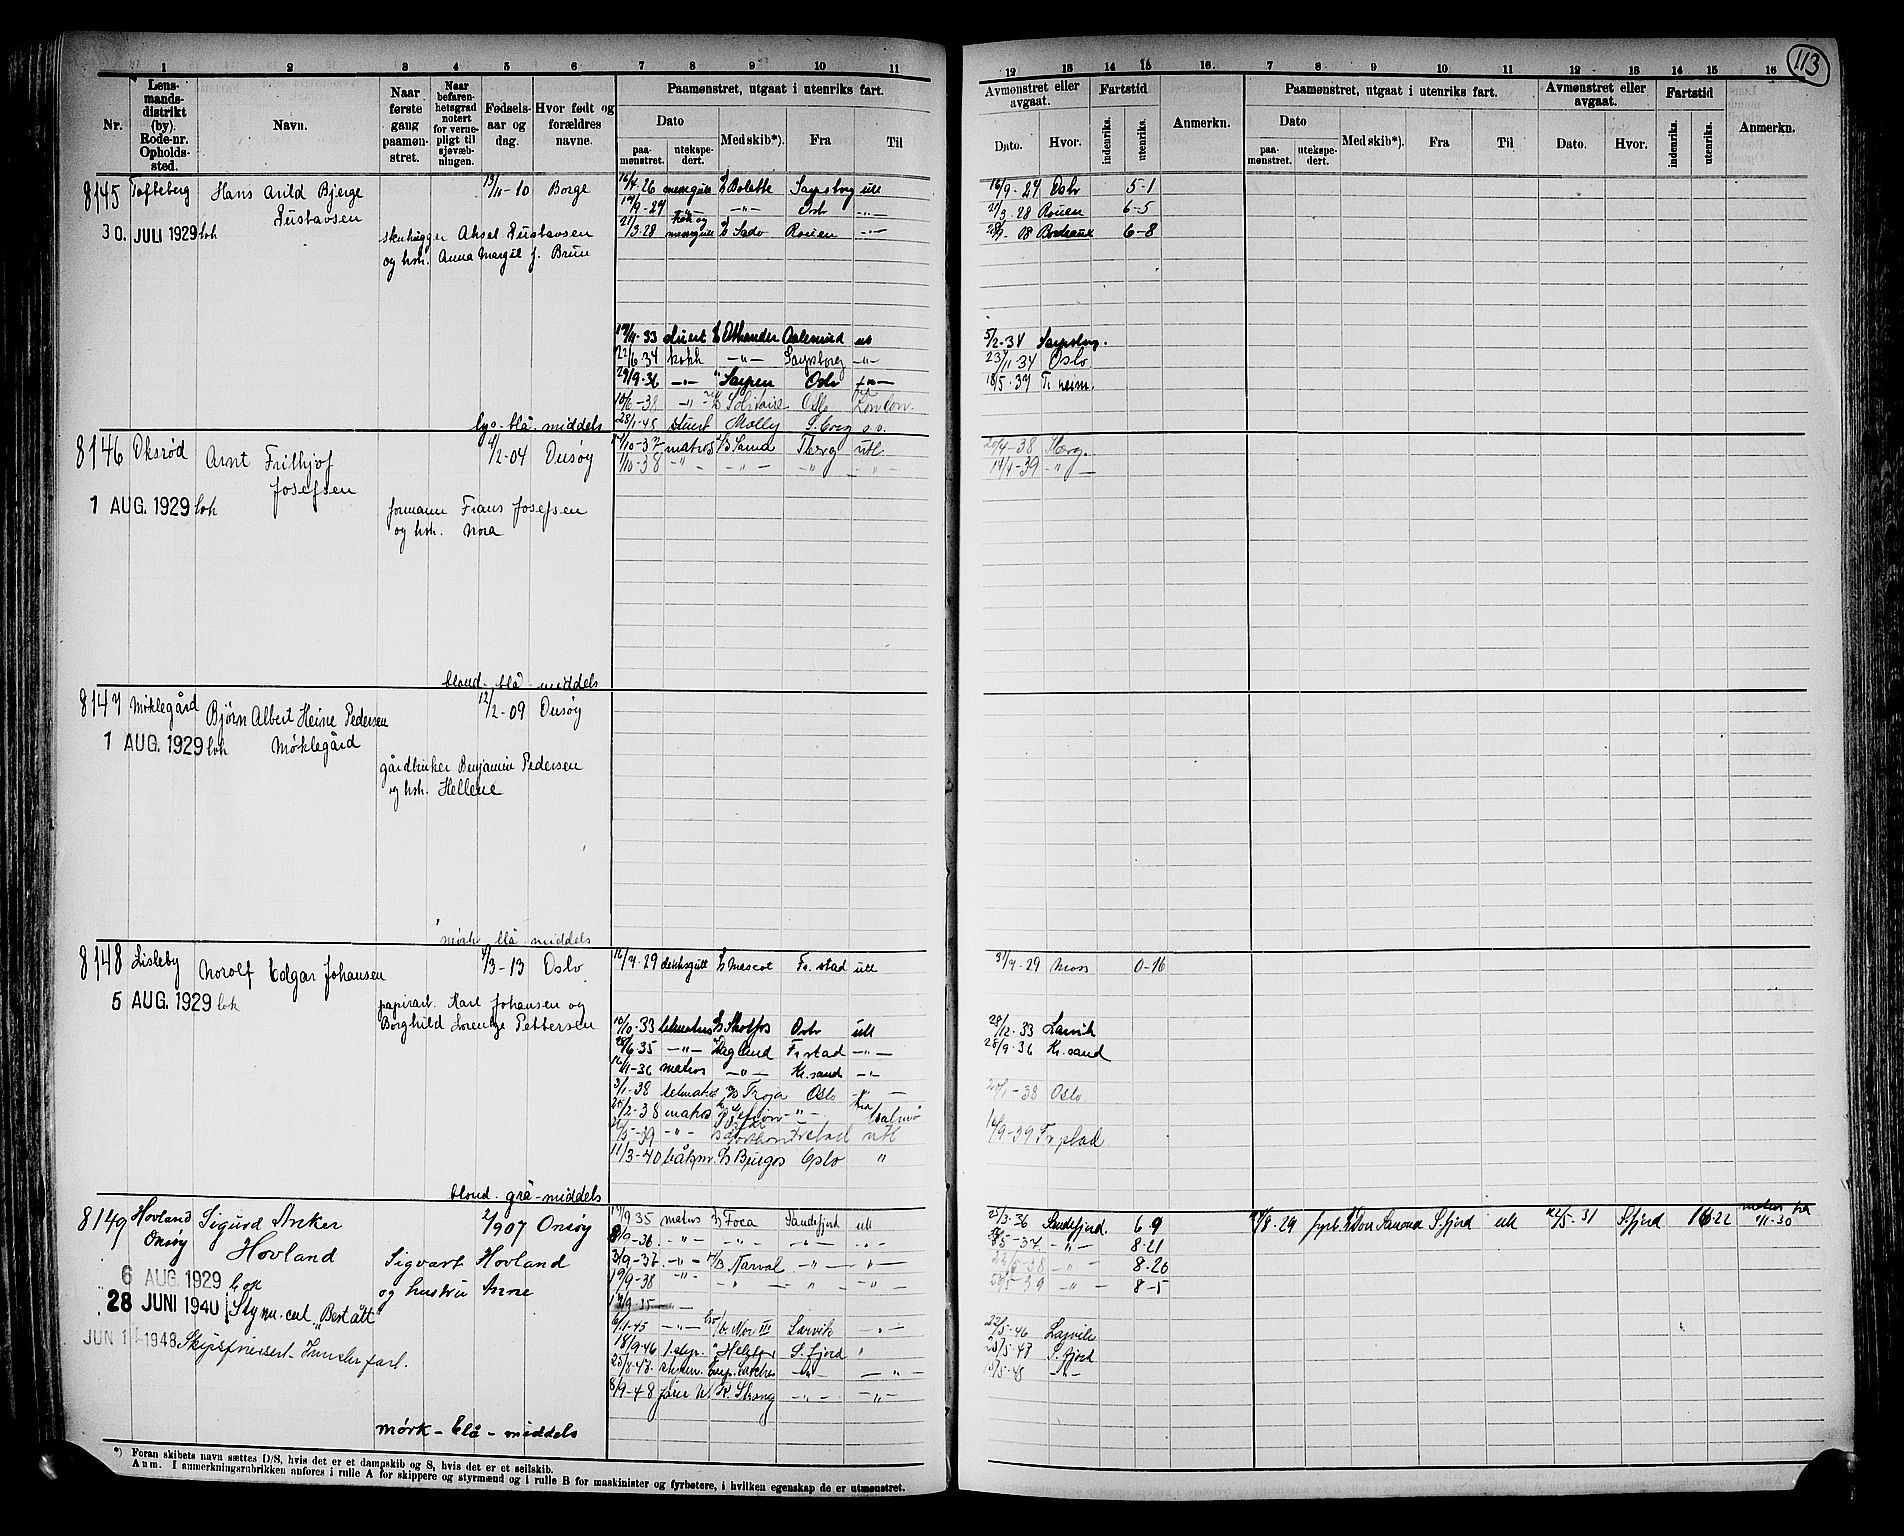 113
1 2 3 4 5 6 7 8 9 10 11
12 13 14 15 16. 7 8 9 10 11 12 13 14 15 16
Nr.
Lens-
mands-
distrikt
(by).
Rode-nr.
Opholds-
sted.
Navn.
Naar
første
gang
paamøn-
stret.
Naar
befaren-
hetsgrad
notert
for verne-
pligt til
sjøvæb-
ningen.
Fødsels-
aar og
dag.
Hvor født og
forældres
navne.
Paamønstret, utgaat i utenriks fart.
Dato
paa-
mønstret.
utekspe-
dert.
Med skib*).
Fra
Til
Avmønstret eller
avgaat.
Dato.
Hvor.
Fartstid
indenriks.
utenriks.
Anmerkn.
Paamønstret, utgaat i utenriks fart.
Dato
paa-
mønstret.
utekspe-
dert.
Med skib*).
Fra
Til
Avmønstret eller
avgaat.
Dato.
Hvor.
Fartstid
indenriks.
utenriks.
Anmerkn.
8145 Tofteberg Hans Arild Bjerge 13/11-10 Borge
Gustavsen
30. JULI 1929 lok
skohugger Aksel Gustavsen
og hok. Anna Margit f. Brun
16/4-26 messegutt D/S Bolette Sarpsborg utl 16/9-27 Oslo 5-1
19/9-27 -"- -"- Oslo -"- 21/3 28 Rouen 6-5
21/3-28 kok og messegutt D/S Sado Rouen -"- Bordeaux 6-8
19/4-33 stuert Aalesund 5/2-34 Sarpsborg.
22/6 34 kokk -"- Sarpsborg -"- 23/11-34 Oslo
29/9-36 -"- " Sarpen Oslo 18/5-37 Tr heim.
10/6-38 -"- Solitaire Oslo
28/1-45 stuert Molly S. borg
lys-blå-middels
8146 Oksrød Arnt Frithjof 4/2-04 Onsøy
Josefsen
1 AUG. 1929 lok
formann Frans Josefsen
og hok. Nora
1/10-37 matros Sama T berg utl 20/4-38
1/10-38 -"- -"- " -"- 14/4-39 -"-
blond-blå-middels
8147 Møklegård Bjørn Albert Heine Pedersen 12/2-09 Onsøy
Møklegård
1 AUG. 1929 lok
gårdbruker Benjamin Pedersen
og hok. Hellene
mørk blå middels
8148 Lisleby Norolf Edgar Johansen 4/3-13 Oslo
5 AUG. 1929 lok
papirarb. Karl Johansen og
Borghild Lorentze Pettersen
16/7-29 dekksgutt D/S Mascot Fr. stad utl 31/7-29 Moss 0-16
10/10-33 letmatros D/S Skotfos Oslo utl 28/12-33 Larvik
28/6 35 -"- Haglund Fr stad -"- 28/9-36 Kr. sand
16/11-36 matros -"- Kr. sand -"-
3/1-38 letmatros Troja Oslo 20/1-38 Oslo
25/2-38 matros -"-
26/5-39 -"- Fr stad utl 14/9-39 Fr stad
11/3-40 båtsm. D/S Burgos Oslo "
blond-grå-middels
8149 Hovland Sigurd Anker 2/1 907 Onsøy
Onsøy Hovland
6 AUG. 1929 lok
28 JUNI 1940 Styrm. cert. "Best. ått
JUN 1 1948
Sigvart Hovland
og hustru Anne
17/9 35 matros D/S Foca Sandefjord utl 25/3-36 Sandefjord 6-9
8/9-36 -"- -"- -"- -"- 28/5-37 -"- 8-21
3/9-37 -"- Narval -"- -"- 22/5-38 -"- 8-20
19/9-38 -"- -"- " -"- -"- 8-5
17/9-35 -"-
6/11-45 -"- Nor III Larvik -"- 22/5-46 Larvik
18/9-46 1. styr. S. fjord " 23/5-47 S. fjord
25/8-47 -"- -"- 15/5-48 -"-
8/9-48 Strong -"- -"-
8-29 fyrb. S. fjord utl 12/5-31 S. fjord 16-22 matros fra 1/11-30
mørk-blå-middels
*) Foran skibets navn sættes D/S, hvis det er et dampskib og S, hvis det er et seilskib.
Anm. I anmerkningsrubrikken anføres i rulle A for skippere og styrmænd og i rulle B for maskinister og fyrbøtere, i hvilken egenskap de er utmønstret.